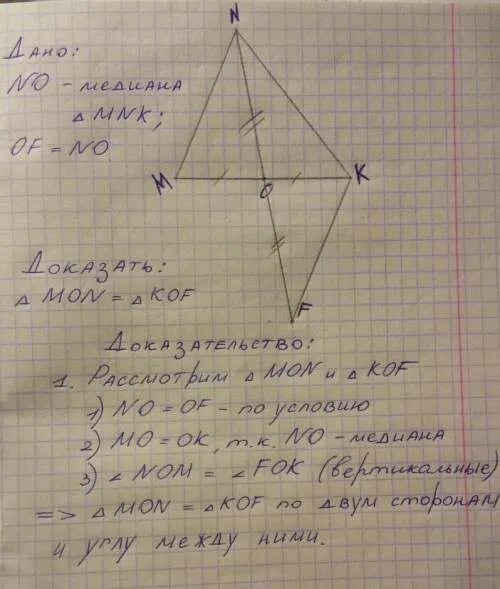 N
Дано:
NO - медиана
△ MNK;
OF = NO
M
O
K
Доказать:
△ MON = △ KOF
F
Доказательство:
1. Рассмотрим △ MON и △ KOF
1) NO = OF - по условию
2) MO = OK, т.к. NO - медиана
3) ∠ NOM = ∠ FOK (вертикальные)
=> △ MON = △ KOF по двум сторонам
и углу между ними.